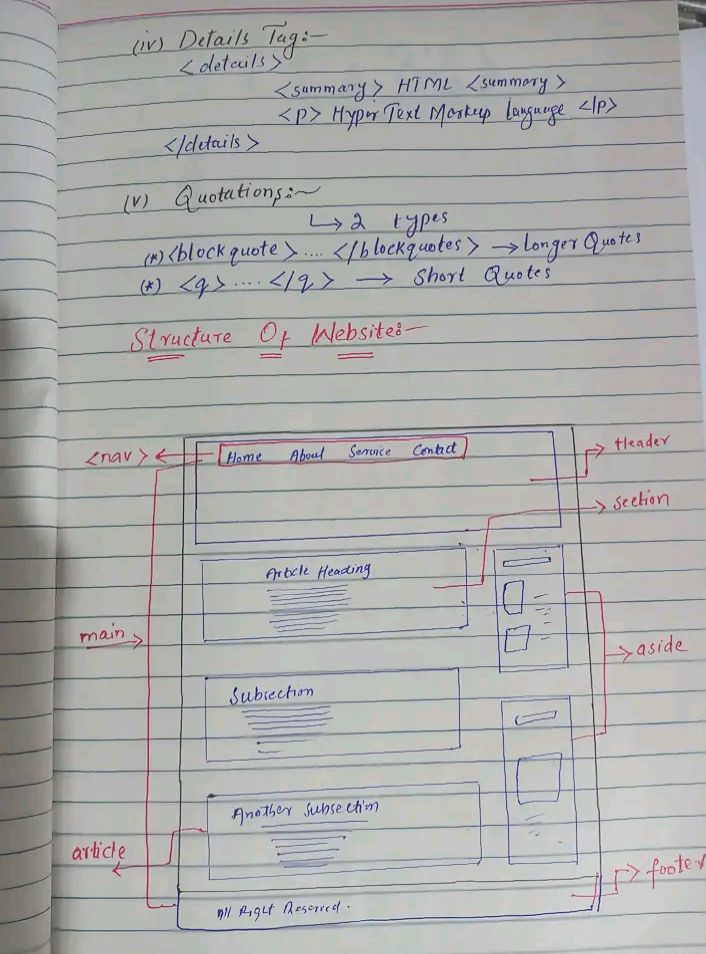 (iv) Details Tag:-
<details>
<summary> HTML <summary>
<P> Hyper Text Markup language </P>
</details>
(v) Quotations:~
↳ 2 types
(*) <blockquote> .... </blockquotes> → Longer Quotes
(*) <q> .... </q> → Short Quotes
Structure Of Website:-
<nav> ← Home About Service Contact
→ Header
→ section
Article Heading
main →
→ aside
Subsection
Another Subsection
article
→ footer
All Right Reserved.